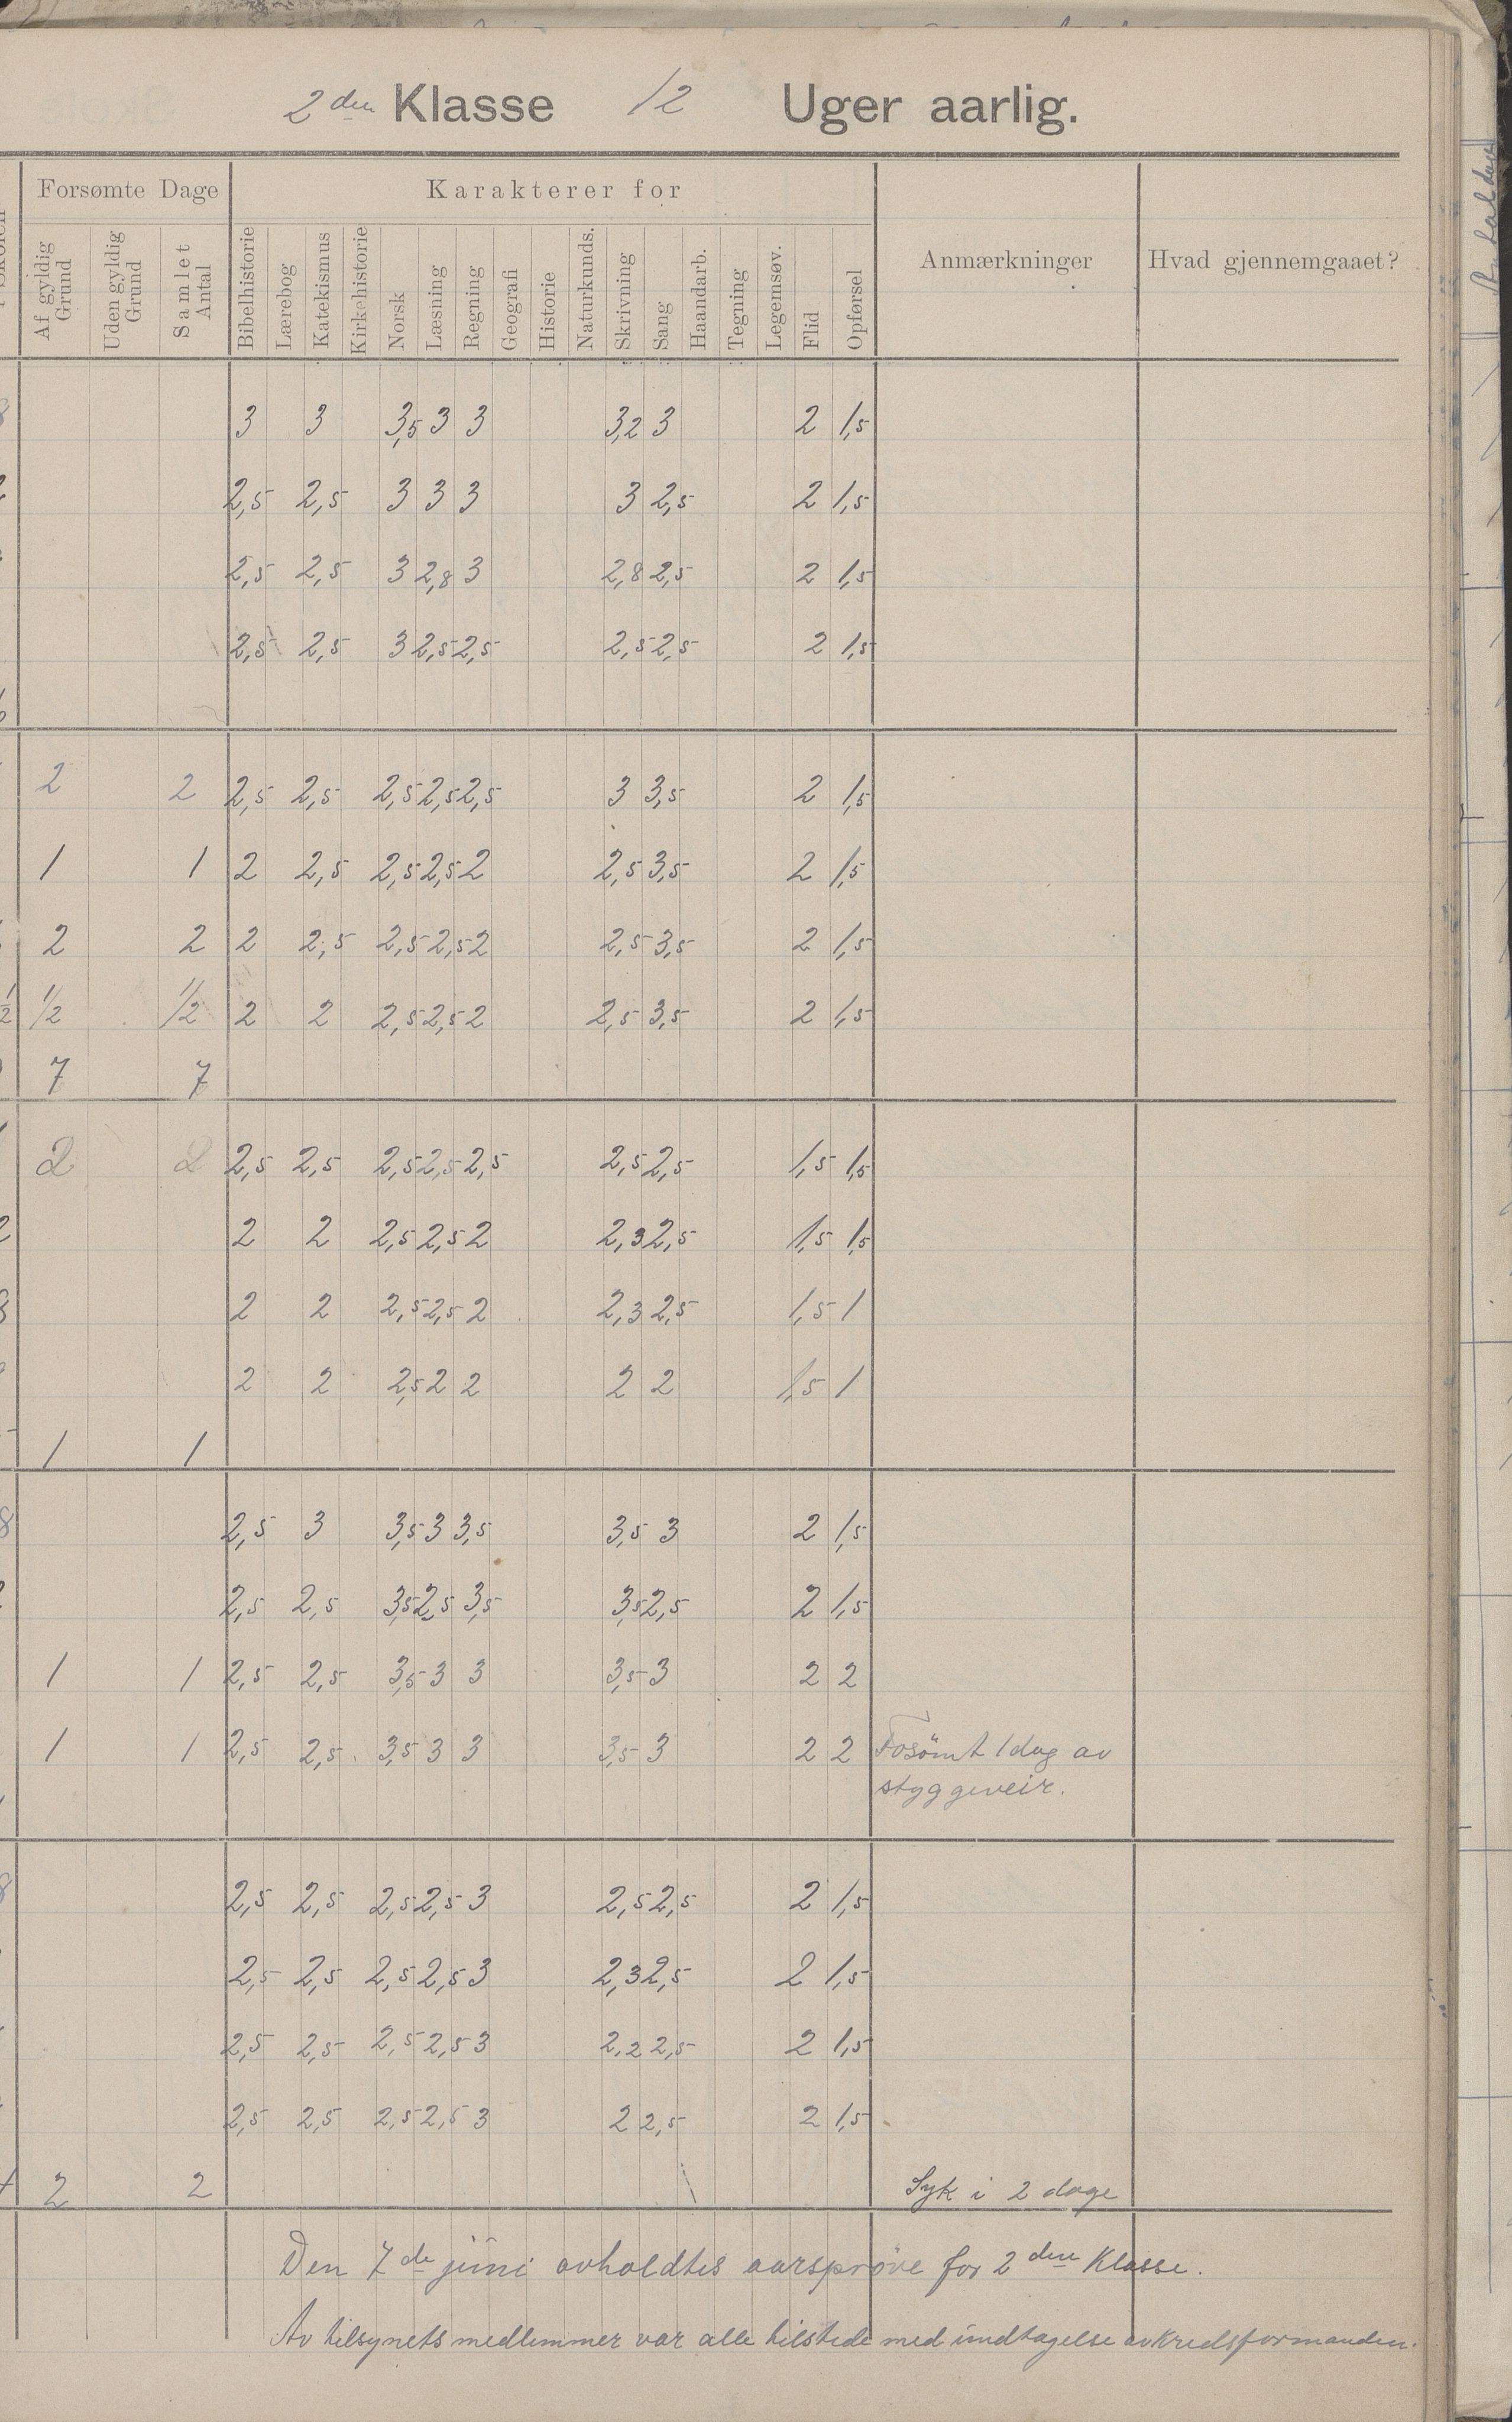 2den Klasse 12 Uger aarlig.
Forsømte Dage Karakterer for
Af gyldig Grund Uden gyldig Grund Samlet Antal Bibelhistorie Lærebog Katekismus Kirkehistorie Norsk Læsning Regning Geografi Historie Naturkunds. Skrivning Sang Haandarb. Tegning Legemsøv. Flid Opførsel Anmærkninger Hvad gjennemgaaet?
3 3 3,5 3 3 3,2 3 2 1,5
2,5 2,5 3 3 3 3 2,5 2 1,5
2,5 2,5 3 2,8 3 2,8 2,5 2 1,5
2,5 2,5 3 2,5 2,5 2,5 2,5 2 1,5
2 2 2,5 2,5 2,5 2,5 2,5 3 3,5 2 1,5
1 1 2 2,5 2,5 2,5 2 2,5 3,5 2 1,5
2 2 2 2,5 2,5 2,5 2 2,5 3,5 2 1,5
1/2 1/2 2 2 2,5 2,5 2 2,5 3,5 2 1,5
7 7
2 2 2,5 2,5 2,5 2,5 2,5 2,5 2,5 1,5 1,5
2 2 2,5 2,5 2 2,3 2,5 1,5 1,5
2 2 2,5 2,5 2 2,3 2,5 1,5 1
2 2 2,5 2 2 2 2 1,5 1
1 1
2,5 3 3,5 3 3,5 3,5 3 2 1,5
2,5 2,5 3,5 2,5 3,5 3,5 2,5 2 1,5
1 1 2,5 2,5 3,5 3 3 3,5 3 2 2
1 1 2,5 2,5 3,5 3 3 3,5 3 2 2 Fosömt 1 dag av
styggeveir.
2,5 2,5 2,5 2,5 3 2,5 2,5 2 1,5
2,5 2,5 2,5 2,5 3 2,3 2,5 2 1,5
2,5 2,5 2,5 2,5 3 2,2 2,5 2 1,5
2,5 2,5 2,5 2,5 3 2 2,5 2 1,5
2 2 Syk i 2 dage
Den 7de juni avholdtes aarsprøve for 2den Klasse.
Av tilsynets medlemmer var alle tilstede med undtagelse av kredsformanden.